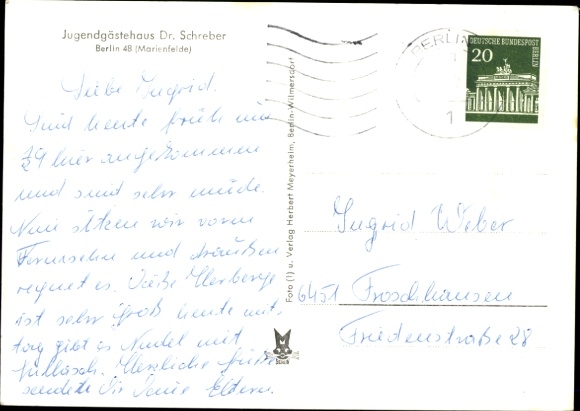 Jugendgästehaus Dr. Schreber
Berlin 48 (Marienfelde)
Liebe Ingrid.
Sind heute früh um
1/2 9 hier angekommen
und sind sehr müde.
Nun sitzen wir vorm
Fernsehn und draußen
regnet es. Diese Herberge
ist sehr groß heute mit,
tag gibt es Nudel mit
Gullasch. Herzliche Grüße
sendete Dir Deine Eltern.
Foto (1) u. Verlag Herbert Meyerheim, Berlin-Wilmersdorf
BERLIN
1
DEUTSCHE BUNDESPOST
BERLIN
20
Ingrid Weber
6451 Froschhausen
Friedenstraße 28